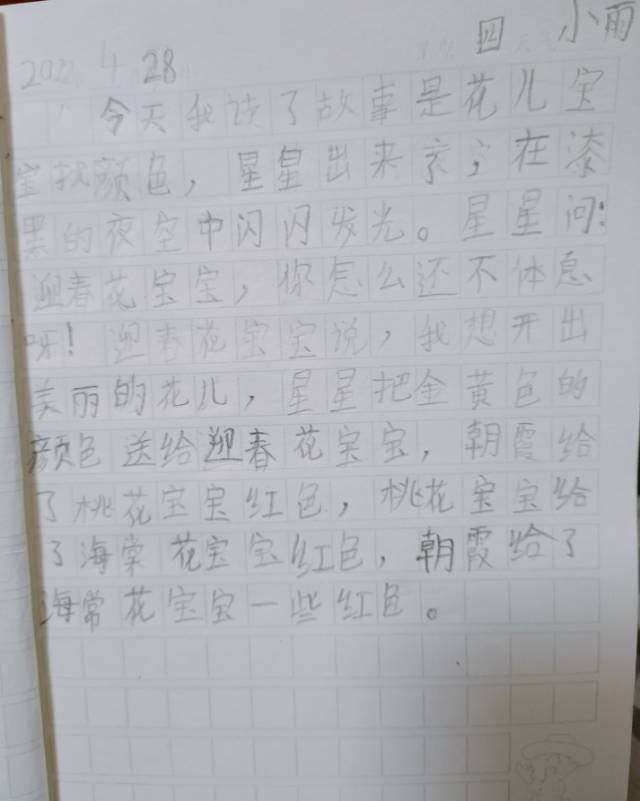 2022 4 28 四 小雨
今天我读了故事是花儿宝
宝找颜色，星星出来京，在漆
黑的夜空中闪闪发光。星星问：
迎春花宝宝，你怎么还不体息
呀！迎春花宝宝说，我想开出
美丽的花儿，星星把金黄色的
颜色送给迎春花宝宝，朝霞给
了桃花宝宝红色，桃花宝宝给
了海棠花宝宝红色，朝霞给了
海常花宝宝一些红色。